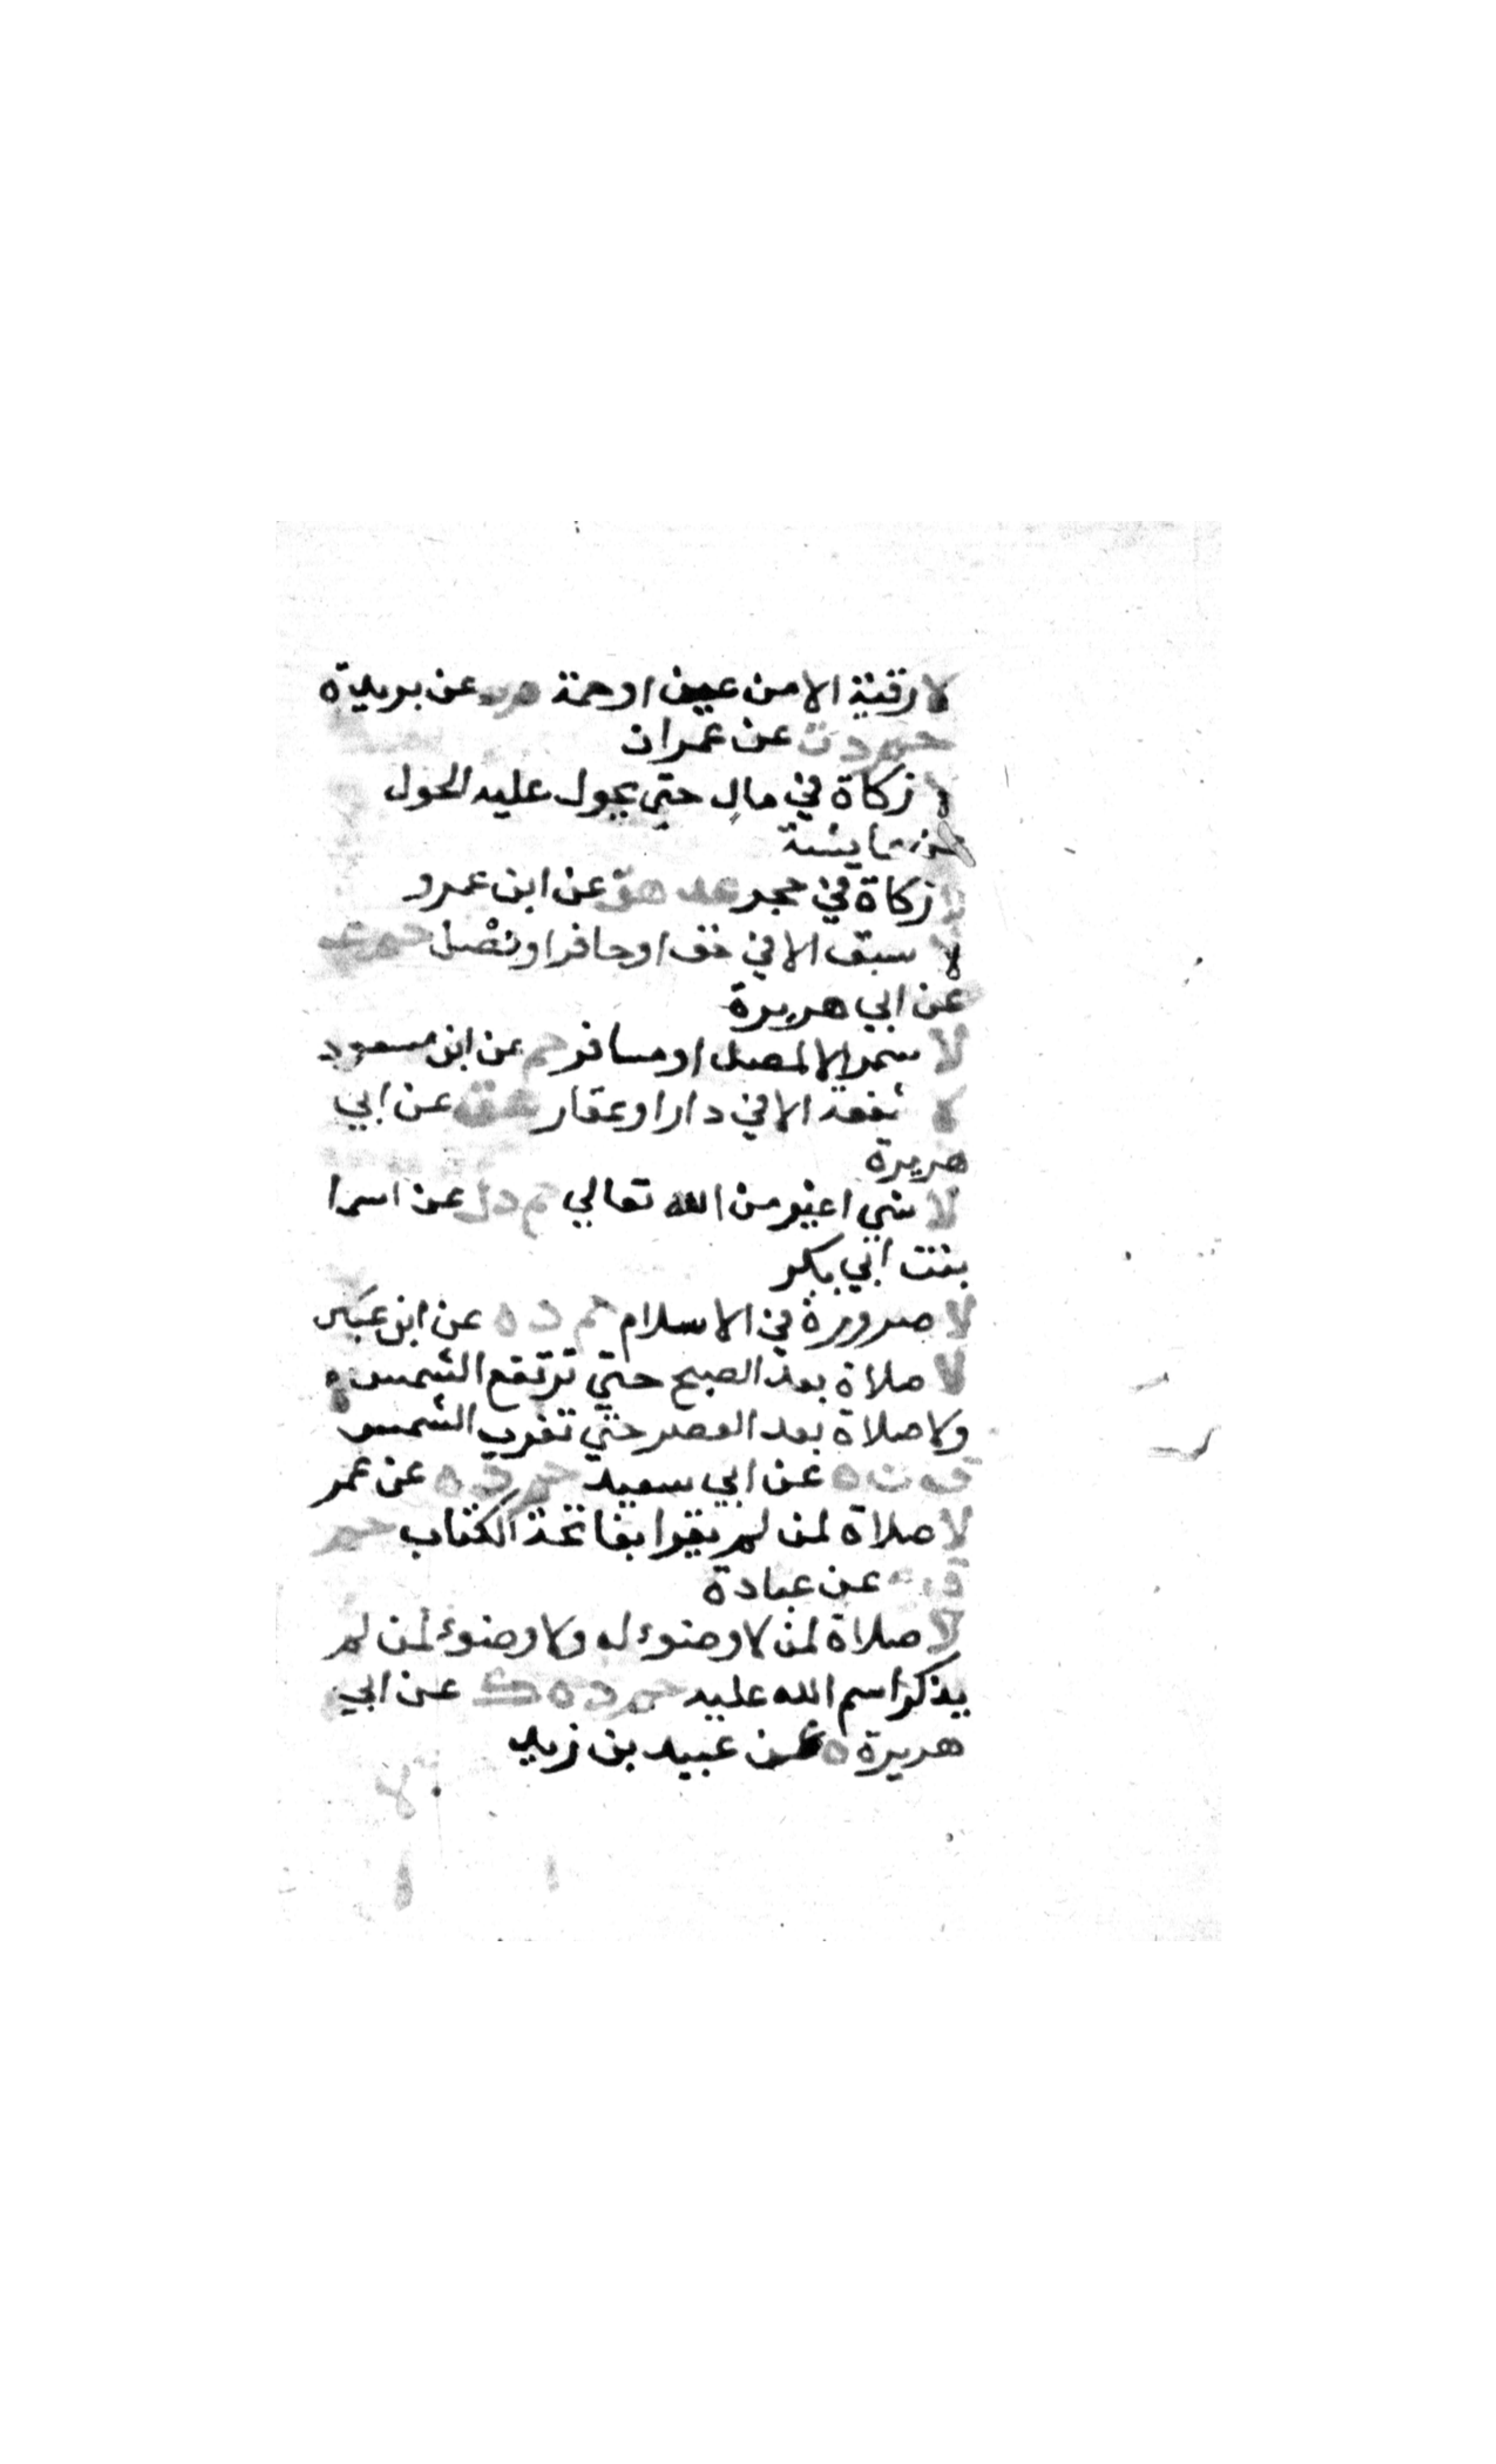 لا رقية الا من عين او حمة م ه عن بريدة
حم د ت عن عمران
لا زكاة في مال حتي يحول عليه الحول
عن عايشة
لا زكاة في حجر عد هق عن ابن عمرو
لا سبق الا في خف او حافر او نصل حم
عن ابي هريرة
لا سمر الا لمصل او مسافر حم عن ابن مسعود
لا شفعة الا في دار او عقار هق عن ابي
هريرة
لا شي اغير من الله تعالي حم عن اسما
بنت ابي بكر
لا صرورة في الاسلام حم د ه عن ابن عباس
لا صلاة بعد الصبح حتي ترتفع الشمس
ولا صلاة بعد العصر حتي تغرب الشمس
ق ن ه عن ابي سعيد حم د ه عن عمر
لا صلاة لمن لم يقرا بفاتحة الكتاب حم
ق عن عبادة
لا صلاة لمن لا وضوء له ولا وضوء لمن لم
يذكر اسم الله عليه حم د ه ك عن ابي
هريرة ه عن عبيد بن زيد